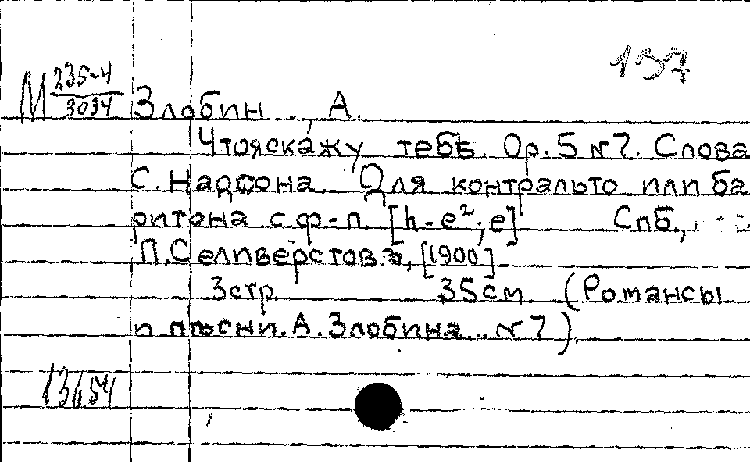 197
М 235-4/3034 Злобин, А.
Что я скажу тебѣ. Op. 5 № 7. Слова
С. Надсона. Для контральто или ба
ритона с ф-п. [h-e²; e] СПб.,
П. Селиверстовъ, [1900].
3 стр. 35 см (Романсы
и пѣсни. А. Злобина. № 7).
13654